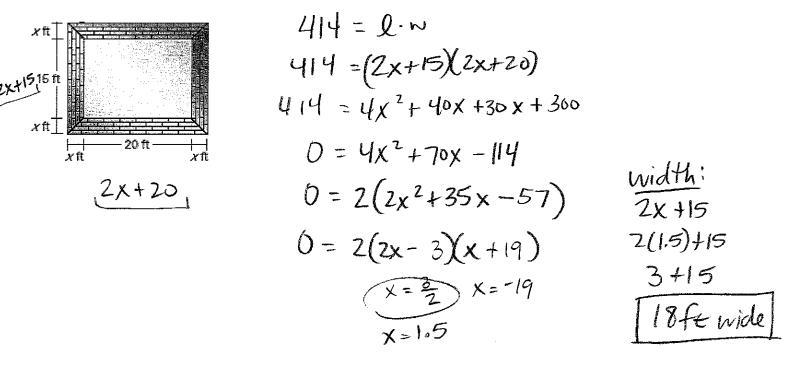 x ft
2x+15
15 ft
x ft
20 ft
x ft
x ft
2x+20
414 = l·w
414 = (2x+15)(2x+20)
414 = 4x² + 40x + 30x + 300
0 = 4x² + 70x - 114
0 = 2(2x² + 35x - 57)
0 = 2(2x - 3)(x + 19)
x = 3/2 x = -19
x = 1.5
width:
2x + 15
2(1.5) + 15
3 + 15
18 ft wide